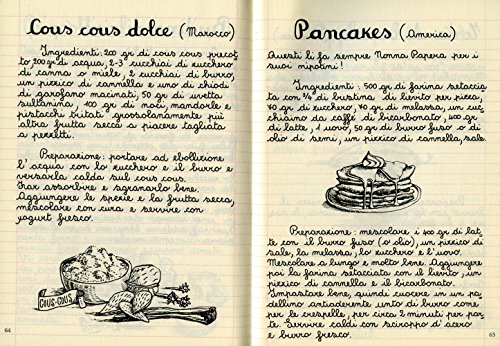 Cous cous dolce (Marocco)
Ingredienti: 200 gr di cous cous precot
to, 200 gr di acqua, 2-3 cucchiai di zucchero
di canna o miele, 2 cucchiai di burro,
un pizzico di cannella e uno di chiodi
di garofano macinati, 50 gr di uvetta
sultanina, 100 gr di noci, mandorle e
pistacchi tritati grossolanamente più
altra frutta secca a piacere tagliata
a pezzetti.
Preparazione: portare ad ebollizione
l'acqua con lo zucchero e il burro e
versarla calda sul cous cous.
Far assorbire e sgranarlo bene.
Aggiungere le spezie e la frutta secca,
mescolare con cura e servire con
yogurt fresco.
COUS-COUS
64
Pancakes (America)
Questi li fa sempre Nonna Papera per i
suoi nipotini!
Ingredienti: 500 gr di farina setaccia
ta con 1/2 di bustina di lievito per pizza,
40 gr di zucchero, 40 gr di melassa, un cuc
chiaino da caffè di bicarbonato, 400 gr
di latte, 1 uovo, 50 gr di burro fuso o di
olio di semi, un pizzico di cannella, sale.
Preparazione: mescolare i 400 gr di lat
te con il burro fuso (o olio), un pizzico di
sale, la melassa, lo zucchero e l'uovo.
Mescolare a lungo e molto bene. Aggiungere
poi la farina setacciata con il lievito, un
pizzico di cannella e il bicarbonato.
Impastare bene, quindi cuocere in un pa
dellino antiaderente unto di burro come
per le crespelle, per circa 2 minuti per par
te. Servire caldi con sciroppo d'acero
e burro fresco.
65